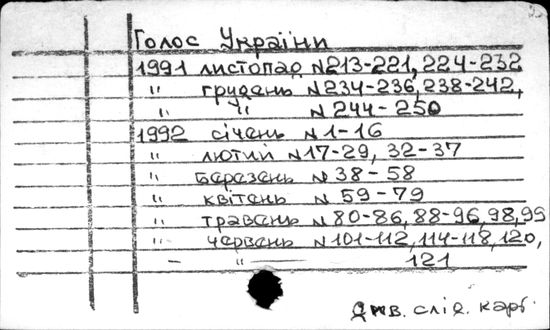 Голос України
1991 листопад N213-221, 224-232
" грудень N234-236, 238-242,
" " N 244-250
1992 січень N 1-16
" лютий N17-29, 32-37
" березень N 38-58
" квітень N 59-79
" травень N 80-86, 88-96, 98, 99
" червень N101-112, 114-118, 120,
– " 121
див. слід. карт.